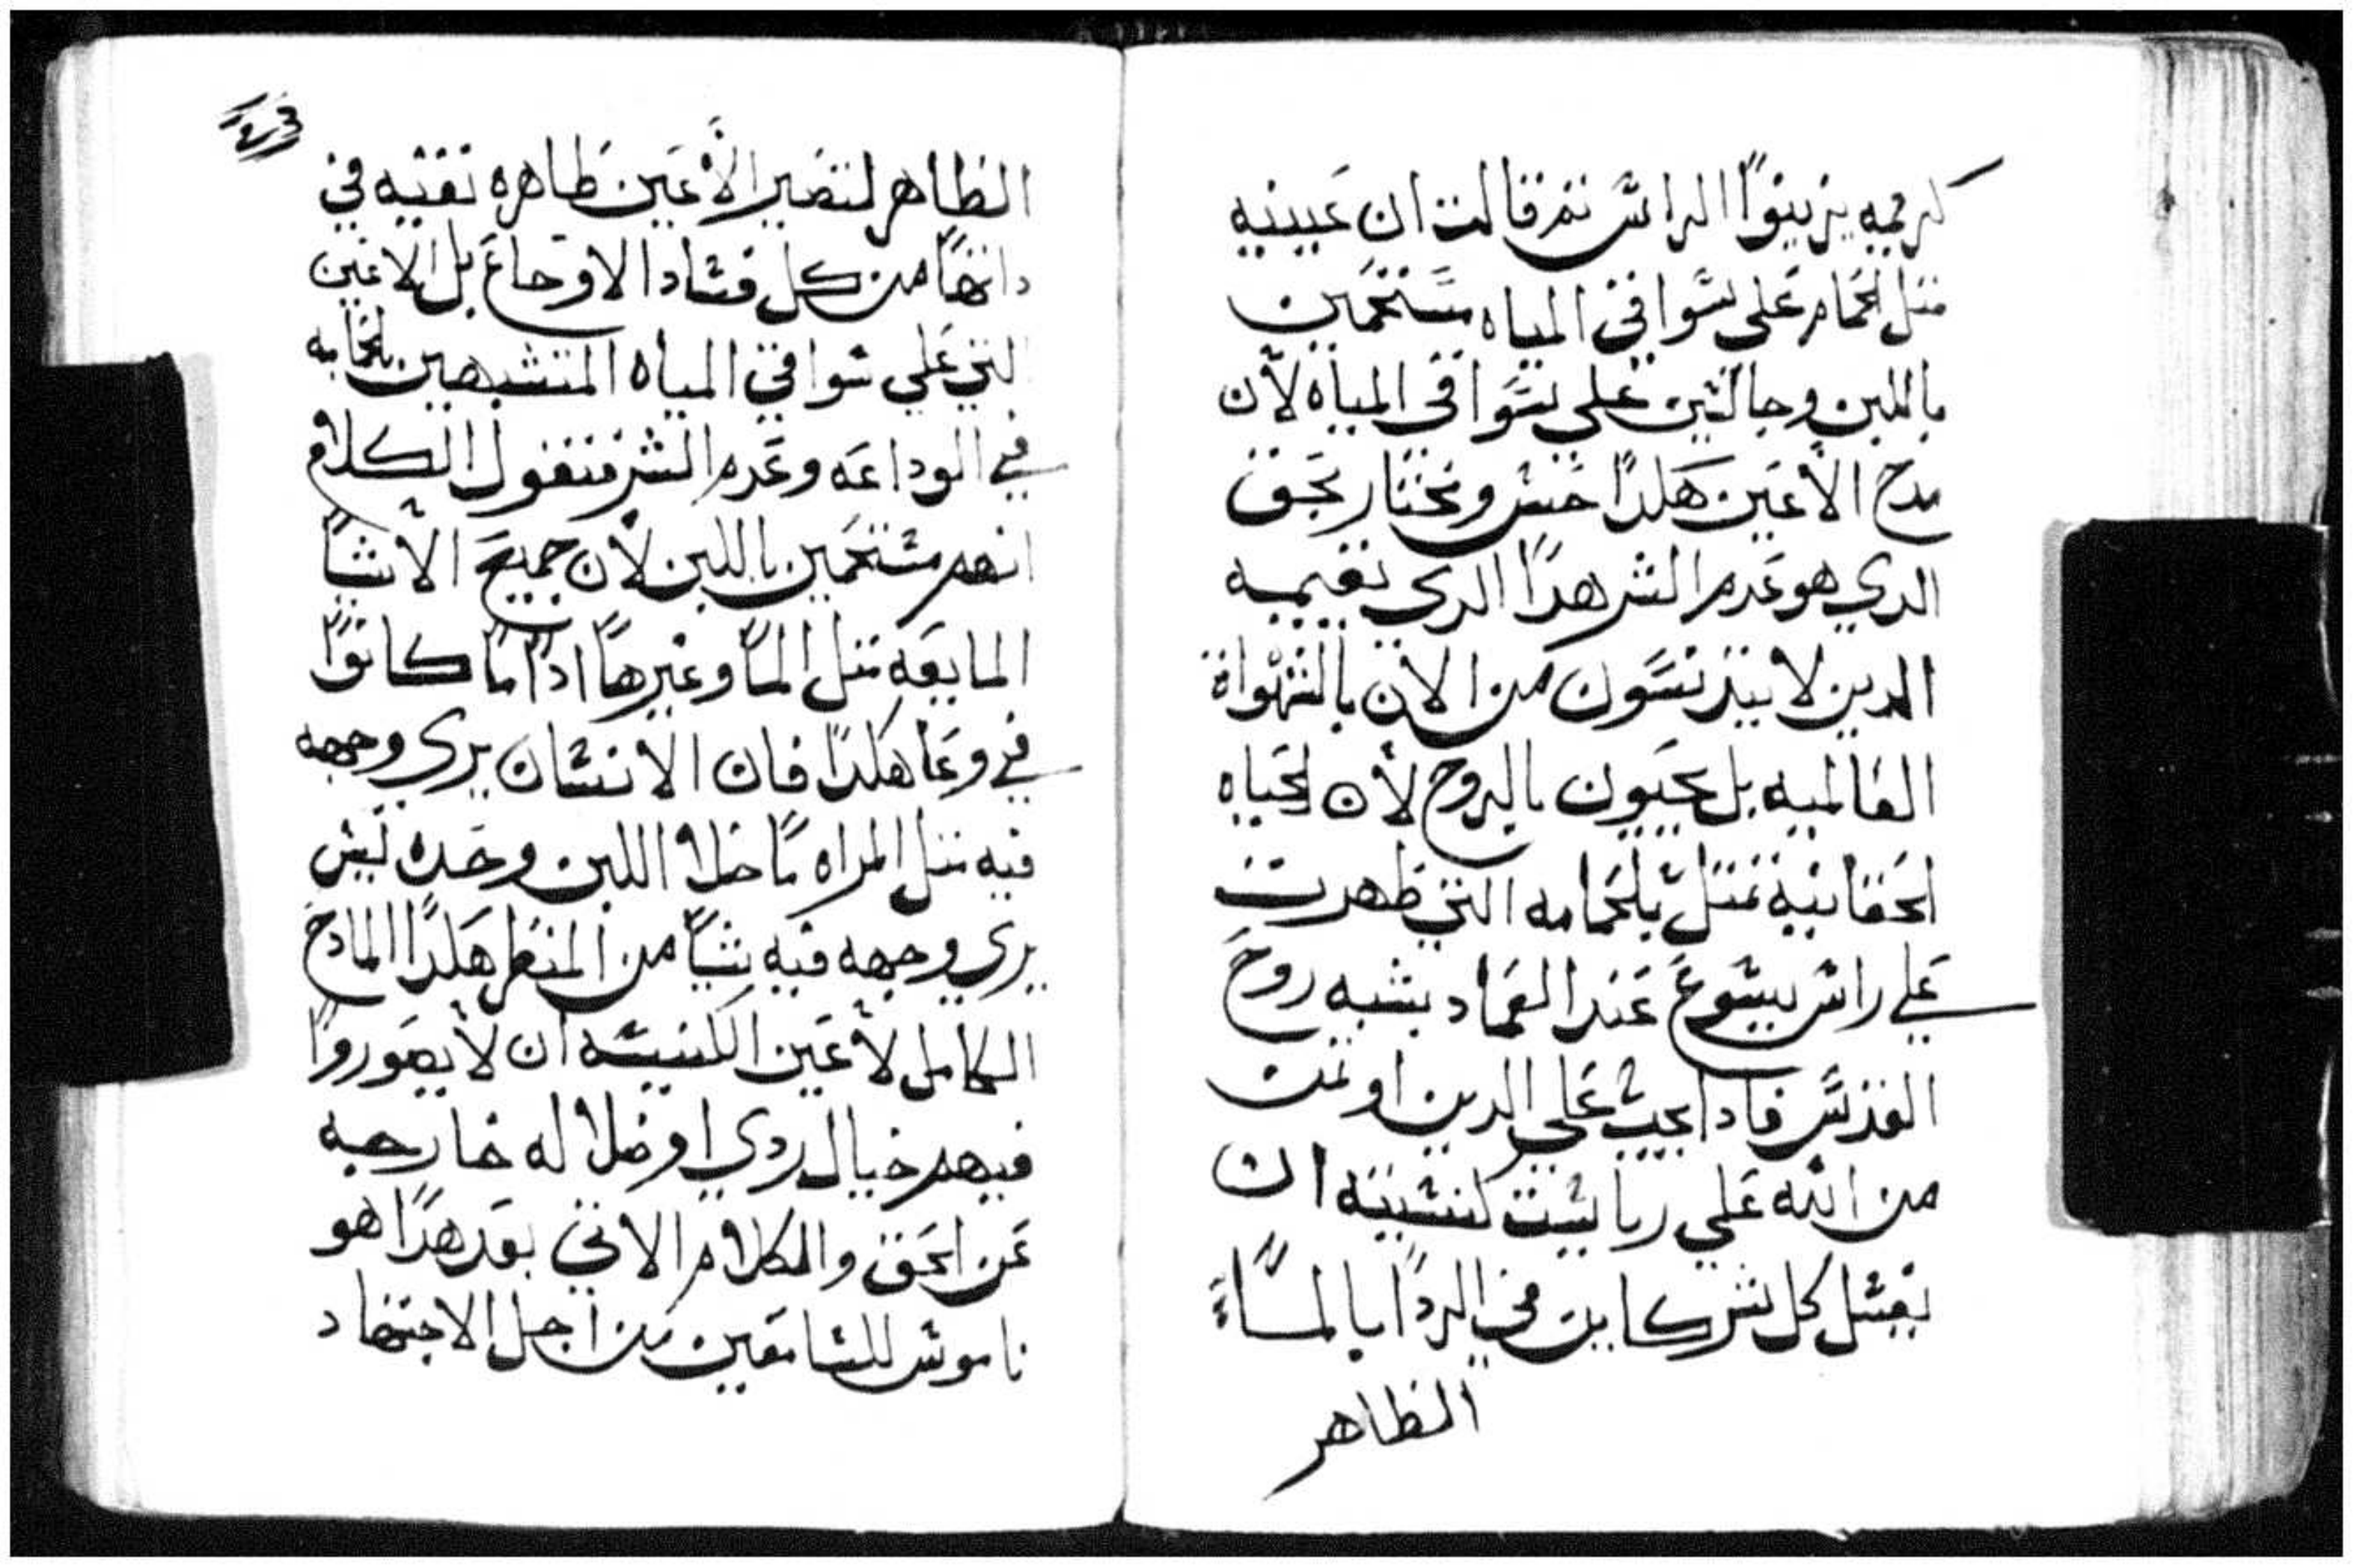 كرميه يزينوا الراس ثم قالت ان عينيه
مثل الحمام على سواقى المياه مستحمين
باللبن وجالسين على سواقى المياه لأن
مدح الأعين هكدا حسن ومختار بحق
الدي هو عدم الشر هدا الدي تقيمه
الدين لا يتدنسون من الان بالشهواة
العالميه بل يحيون بالروح لأن الحياه
الحقانية تمتل بالحمامه التي ظهرت
علي راس يسوع عند العماد بشبه روح
القدس فادا يجب علي الدين اوتمن
من الله علي رياست كنسيته ان
يغسل كل شر كاين في الردا بالماء
الظاهر
الظاهر لتصير الأعين ظاهره نقيه في
داتها من كل فساد الاوجاع بل الاعين
التي علي سواقي المياه المتشبهين بالحمامه
في الوداعه وعدم الشر فتقول الكلام
انهم مستحمين باللبن لأن جميع الأشيا
المايعه متل الما وغيرها ادا ما كانوا
في وعا هكدا فان الانسان يري وجهه
فيه متل المراه ما خلا اللبن وحده ليس
يري وجهه فيه شيا من المنظر هكدا المادح
الكامل لأعين الكنيسه ان لا يصوروا
فيهم خيال ردي او ضلاله خارجه
عن الحق والكلام الاتي بعد هدا هو
ناموس للسامعين من اجل الاجتهاد